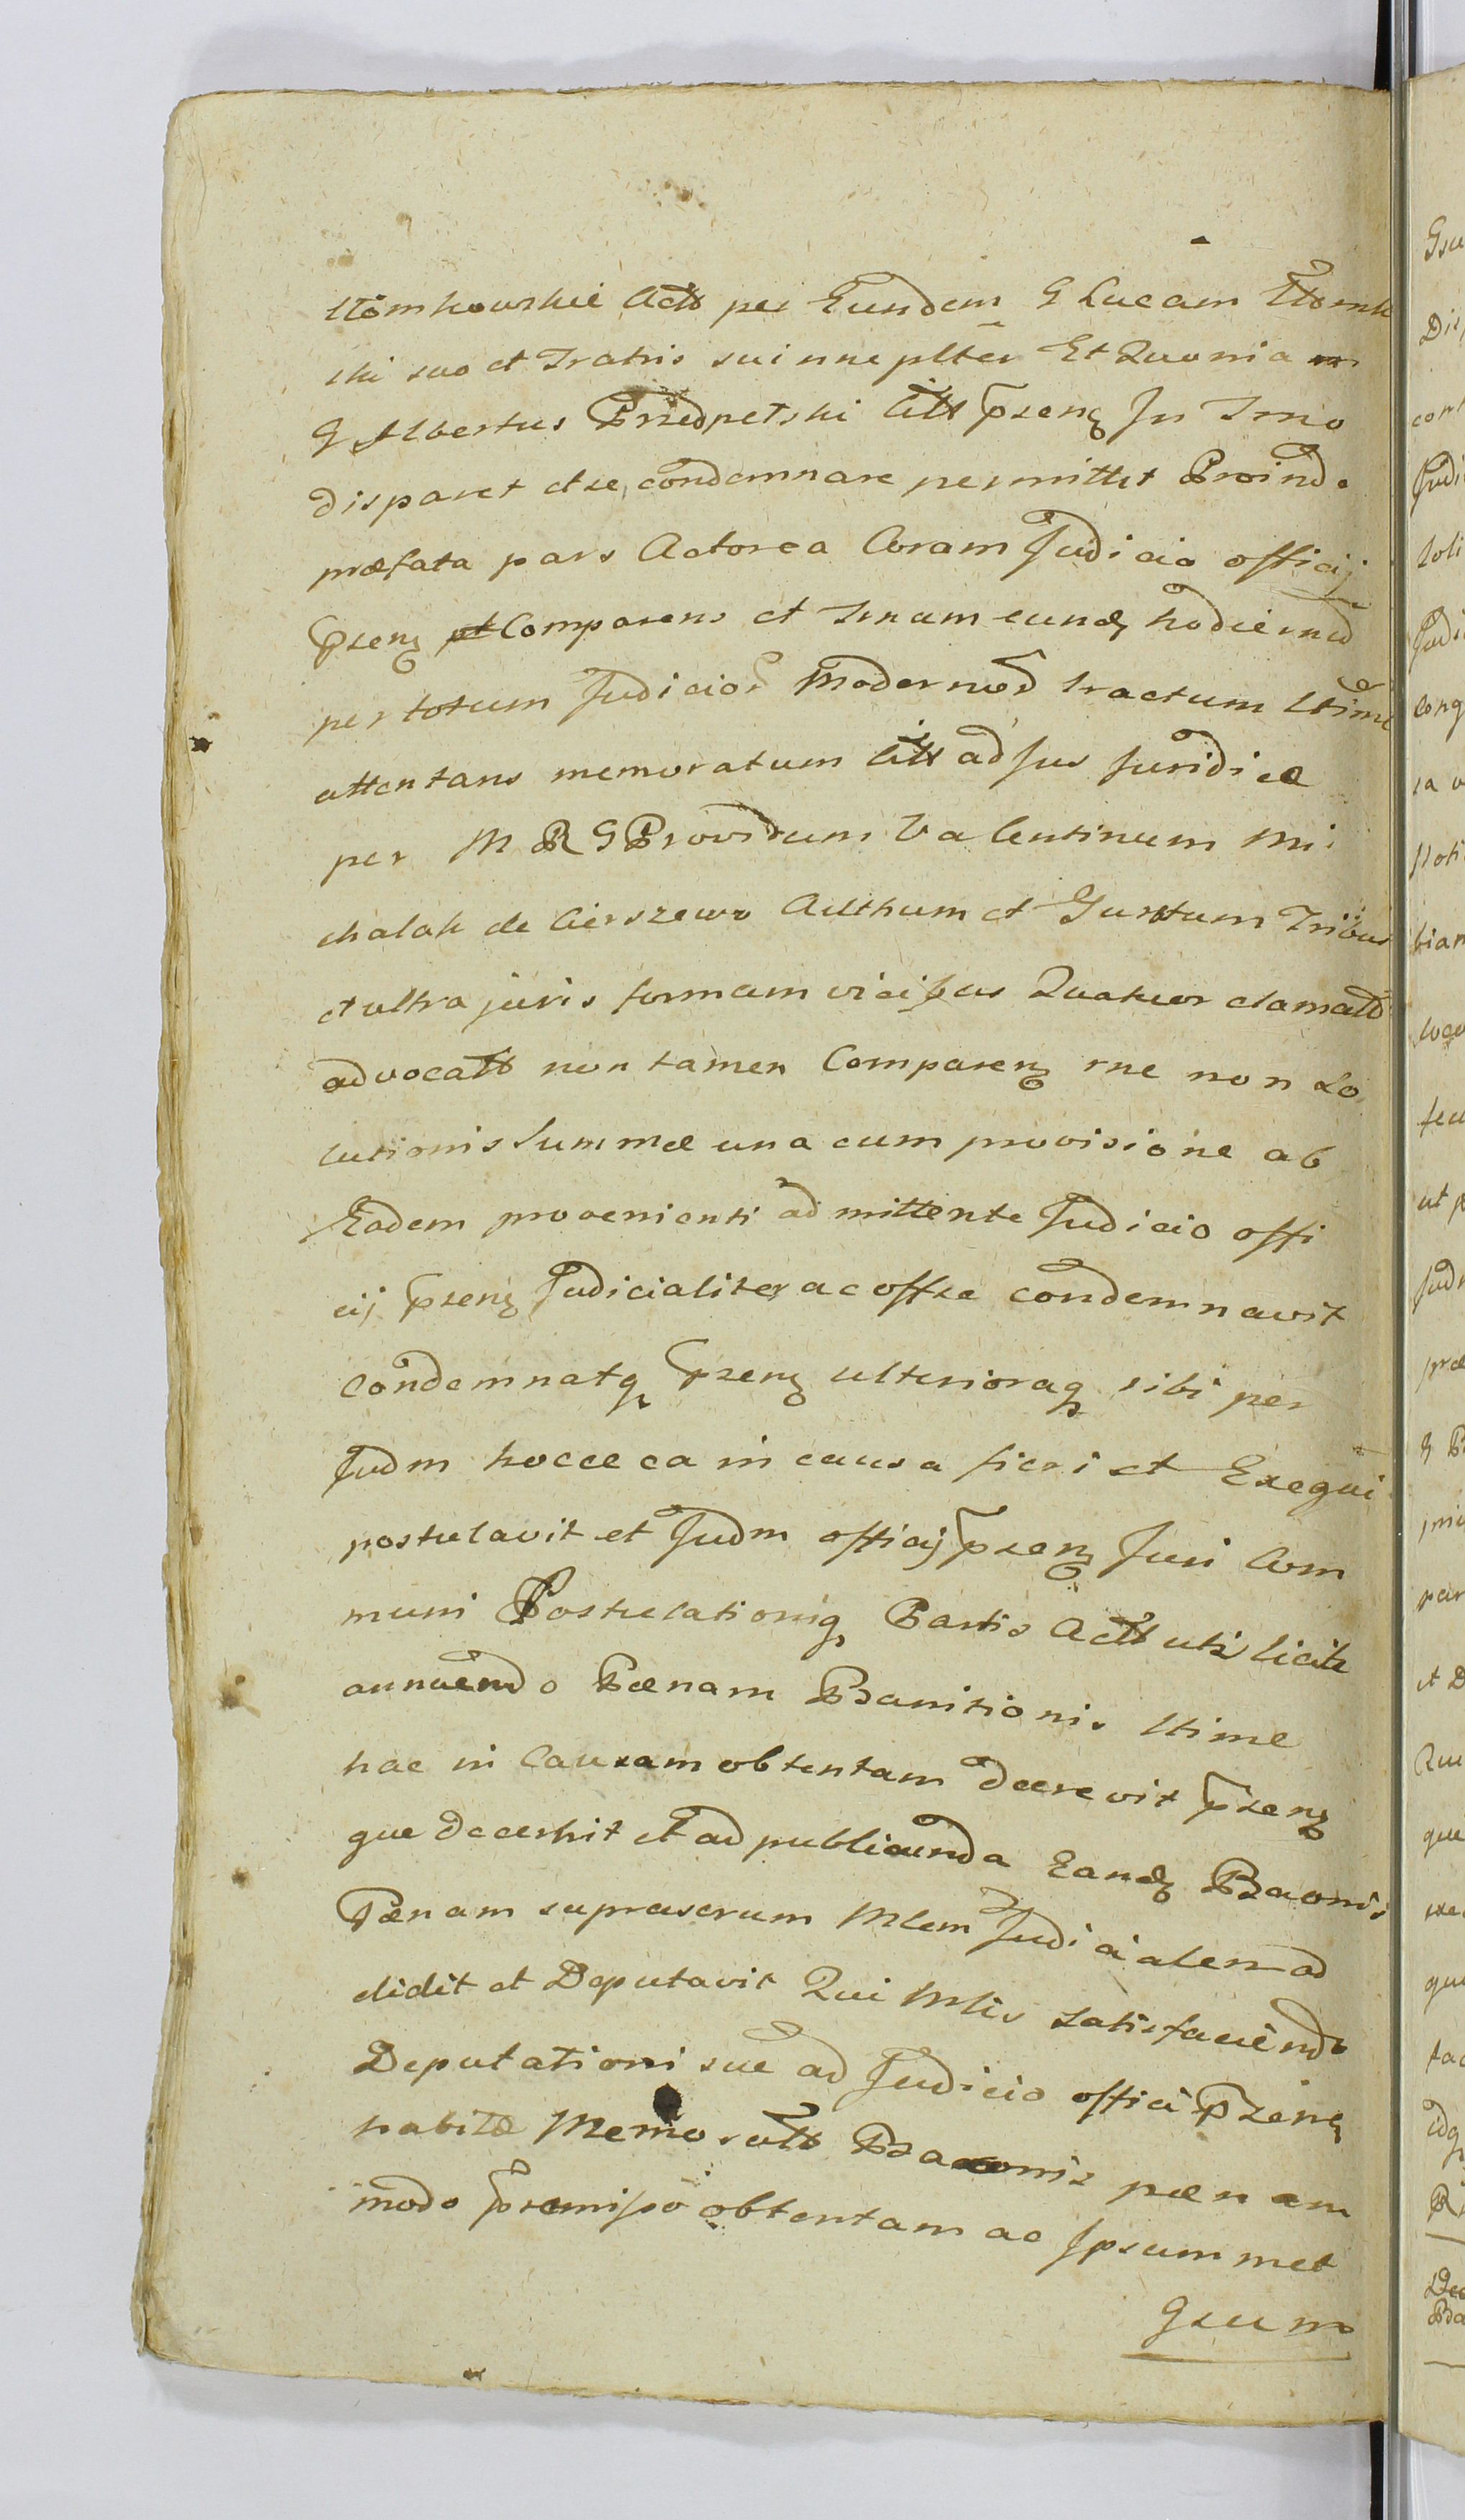 Słomkowskie Actt per Eundem G Lucam Słomk
ski suo et Fratris sui nne plter Et Quonia m
G Albertus Przedpetski Citt Prsenq In Trno
disparet et se condemnare permittet Proinde
præfata pars Actorea Coram Judicio officij
Prsenq Comparens et Trnum eundq hodiernu
per totum Judicior Modernor tractum Ltime
attentans memoratum Citt ad Jus Juridice
per M R G Providum Valentinum Mi
chalak de Cierszewo Aulthum et Jurtum Tribus
et ultra juris formam vicibus Quatuor clamatt
advocatt non tamen Comparenq rne non So
lutionis Summæ una cum provisione ab
Eadem provenienti admittente Judicio offi
cij Prsenq Judicialiter ac offse condemnavit
Condemnatq Prsenq ulterioraq sibi per
Judm hocce ea in causa fieri et Exequi
postulavit et Judm officij Prsenq Juri Com
muni Postulationiq Partis Actt uti licite
annuendo Pænam Bannitionis Ltime
hac in Causam obtentam decrevit Prsenq
que decernit et ad publicanda Eandq Baonis
Pænam suprascrum Mlem Judicialem ad
didit et Deputavit Qui Mlis satisfaciendo
Deputationi suæ ad Judicio offici Prsenq
habitæ Memoratt Baonis pænam
modo Præmisso obtentam ac Ipsummet
Gsum